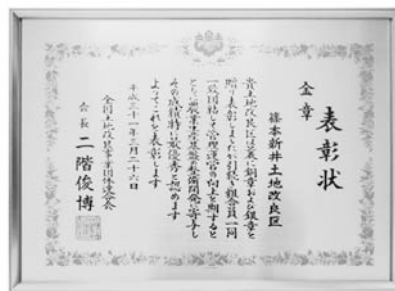 表彰状
金章
篠本新井土地改良区
貴土地改良区は曩に銅章および銀章を
贈り表彰しましたが引続き組合員一同
一致団結して管理運営の向上を期すると
ともに農業生産基盤の整備開発に寄与し
その成績特に最優秀と認めます
よってこれを表彰します
平成三十一年三月二十六日
全国土地改良事業団体連合会
会長 二階俊博